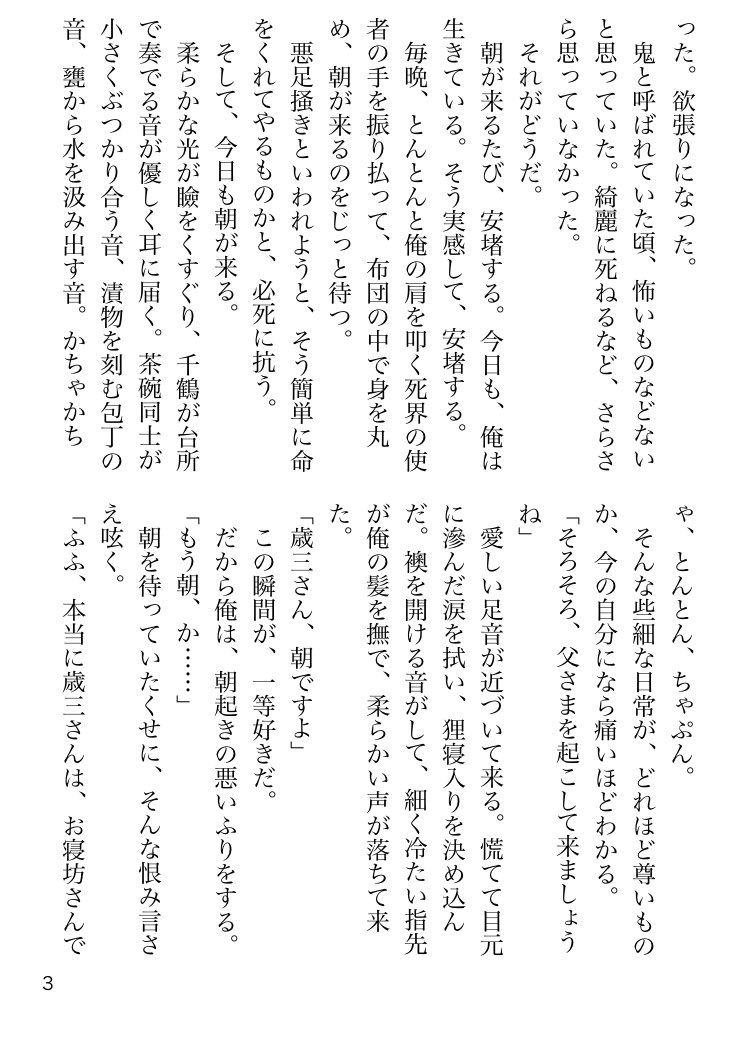 った。欲張りになった。
　鬼と呼ばれていた頃、怖いものなどない
と思っていた。綺麗に死ねるなど、さらさ
ら思っていなかった。
　それがどうだ。
　朝が来るたび、安堵する。今日も、俺は
生きている。そう実感して、安堵する。
　毎晩、とんとんと俺の肩を叩く死界の使
者の手を振り払って、布団の中で身を丸
め、朝が来るのをじっと待つ。
　悪足掻きといわれようと、そう簡単に命
をくれてやるものかと、必死に抗う。
　そして、今日も朝が来る。
　柔らかな光が瞼をくすぐり、千鶴が台所
で奏でる音が優しく耳に届く。茶碗同士が
小さくぶつかり合う音、漬物を刻む包丁の
音、甕から水を汲み出す音。かちゃかち
ゃ、とんとん、ちゃぷん。
　そんな些細な日常が、どれほど尊いもの
か、今の自分になら痛いほどわかる。
「そろそろ、父さまを起こして来ましょう
ね」
　愛しい足音が近づいて来る。慌てて目元
に滲んだ涙を拭い、狸寝入りを決め込ん
だ。襖を開ける音がして、細く冷たい指先
が俺の髪を撫で、柔らかい声が落ちて来
た。
「歳三さん、朝ですよ」
　この瞬間が、一等好きだ。
　だから俺は、朝起きの悪いふりをする。
「もう朝、か……」
　朝を待っていたくせに、そんな恨み言さ
え呟く。
「ふふ、本当に歳三さんは、お寝坊さんで
3